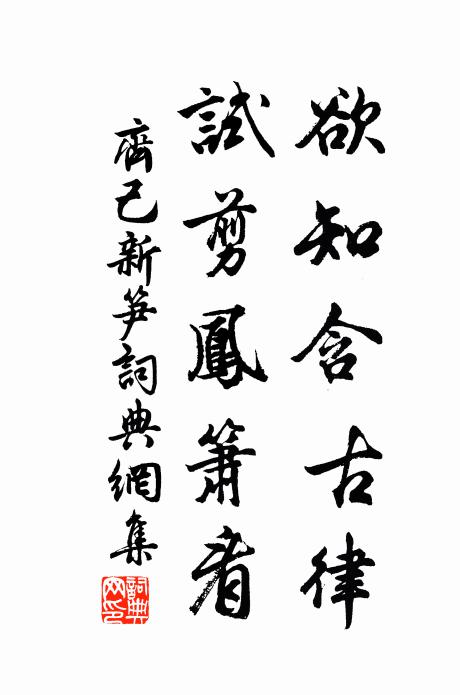 欲知含古律
試剪鳳簫看
齊己新笋詞典網集
詞典网印